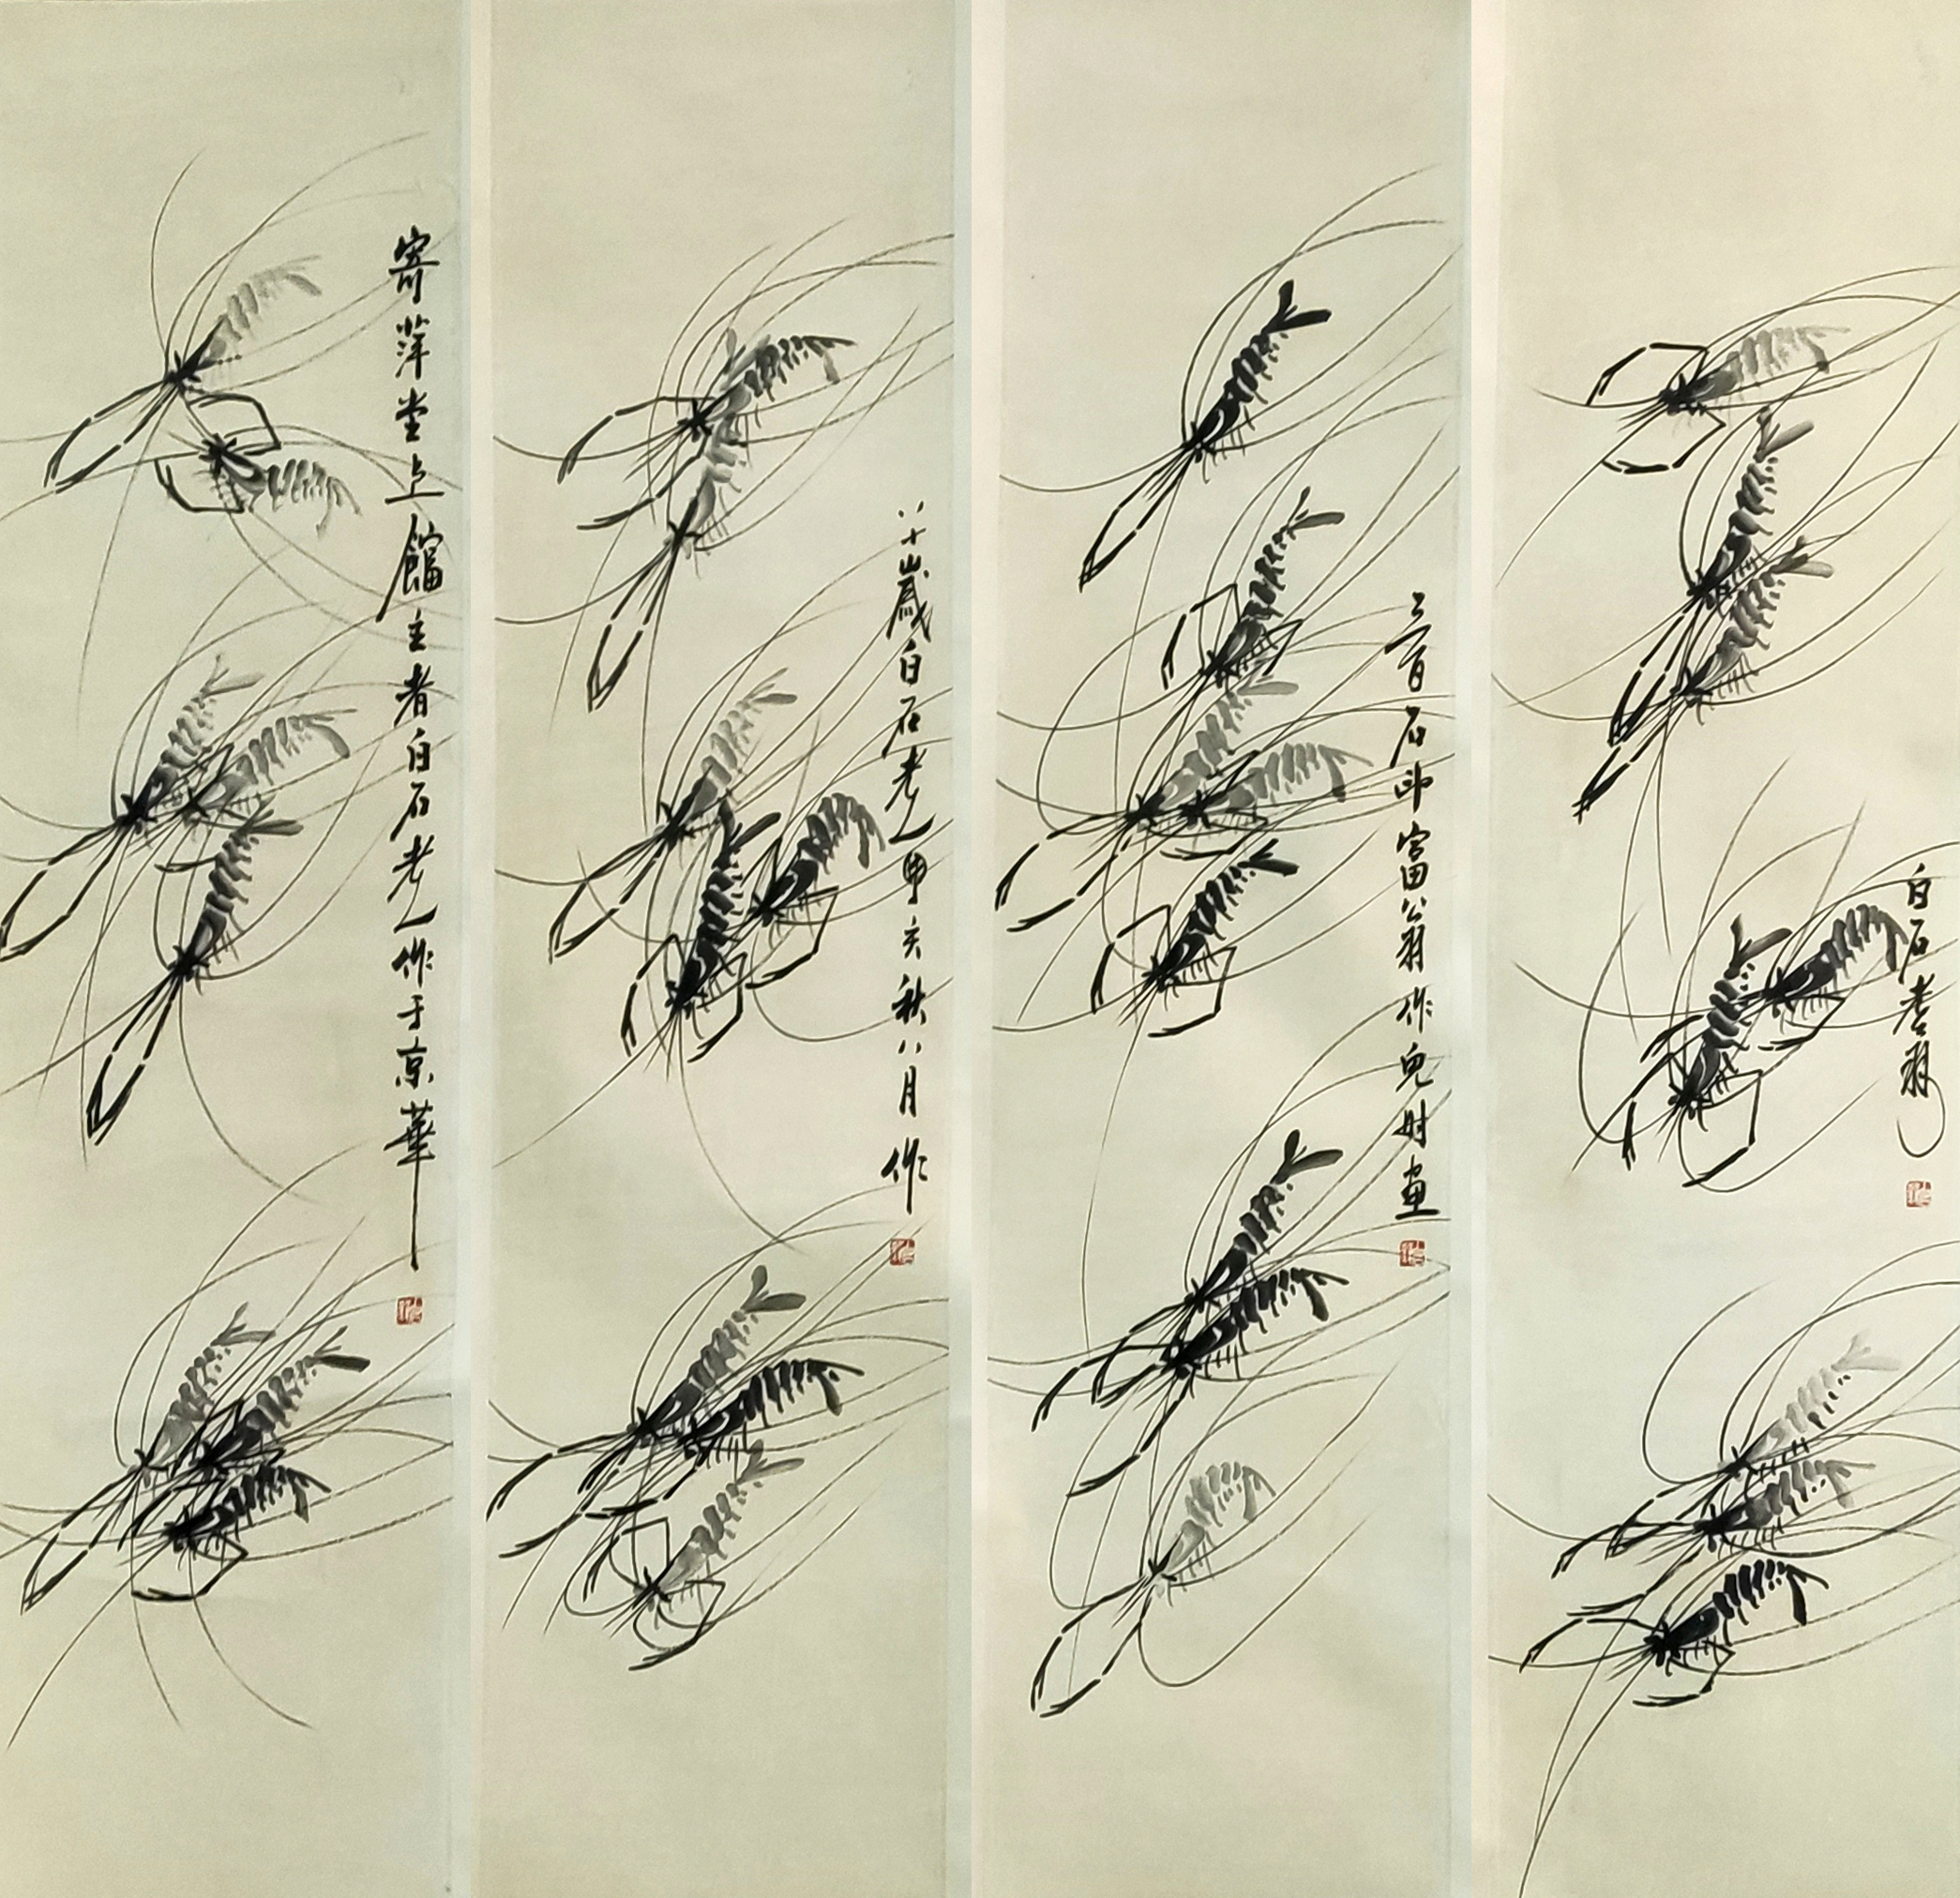 白石老翁
三百石印富翁作兒时畫
八十歲白石老人亥秋八月作
寄萍堂上館主者白石老人作于京華